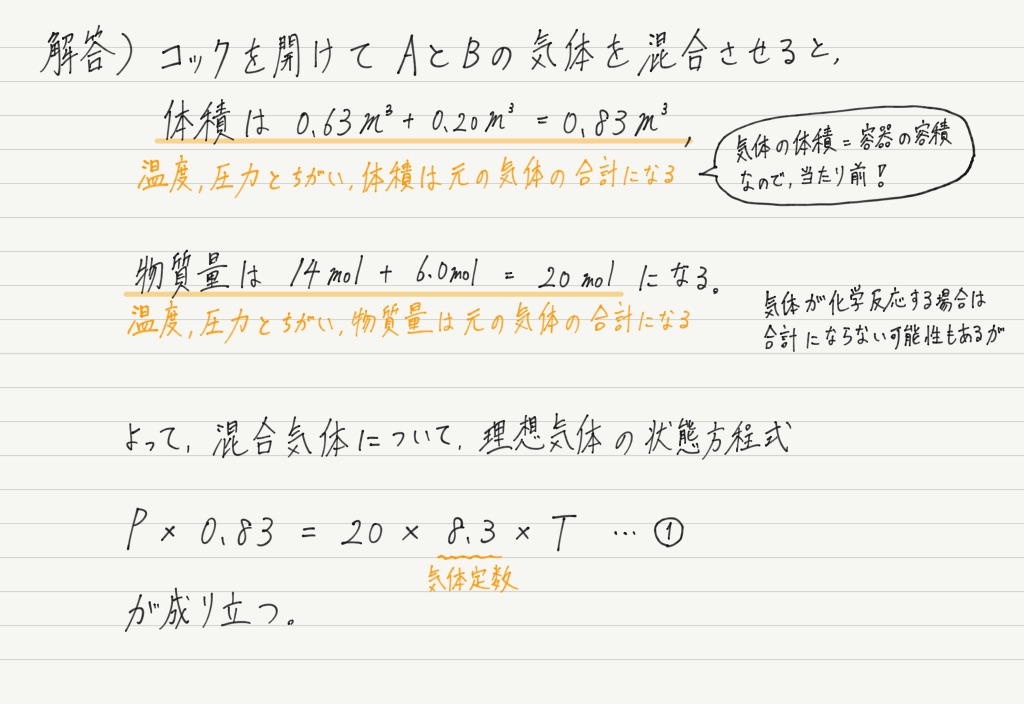 解答) コックを開けてAとBの気体を混合させると,
体積は 0.63m³ + 0.20m³ = 0.83m³,
温度,圧力とちがい,体積は元の気体の合計になる
気体の体積=容器の容積
なので,当たり前!
物質量は 14mol + 6.0mol = 20mol になる。
温度,圧力とちがい,物質量は元の気体の合計になる
気体が化学反応する場合は
合計にならない可能性もあるが
よって,混合気体について,理想気体の状態方程式
P × 0.83 = 20 × 8.3 × T … ①
気体定数
が成り立つ。